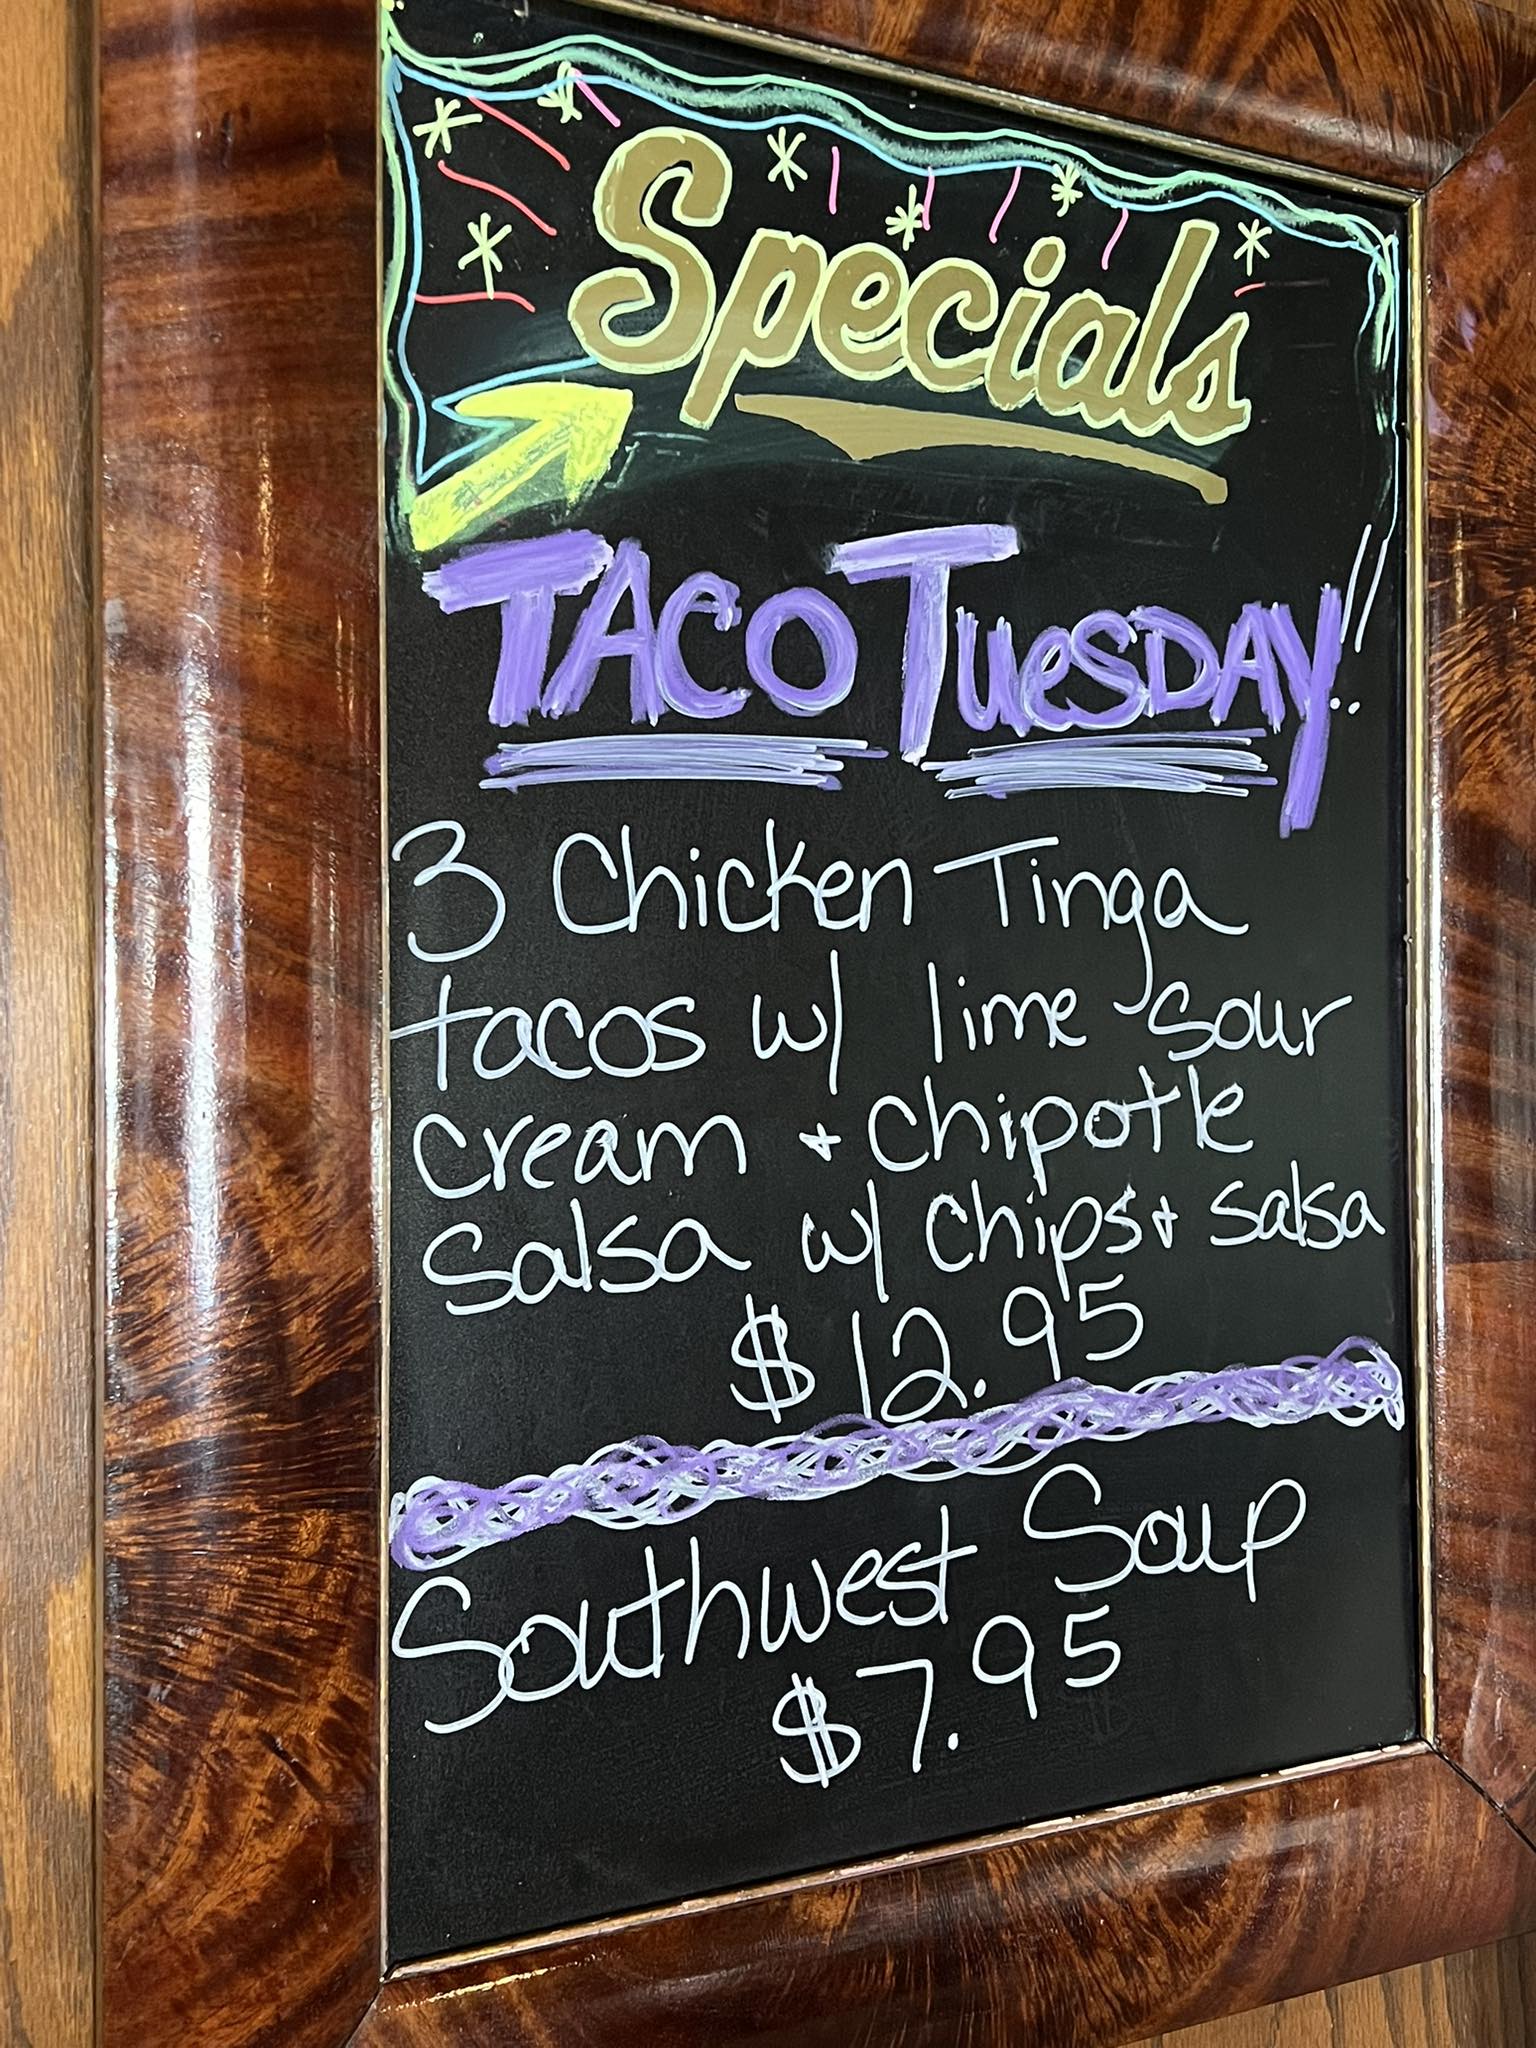 Specials
TACO TUESDAY!!
3 Chicken Tinga
tacos w/ lime sour
cream + chipotle
Salsa w/ chips + salsa
$12.95
Southwest Soup
$7.95